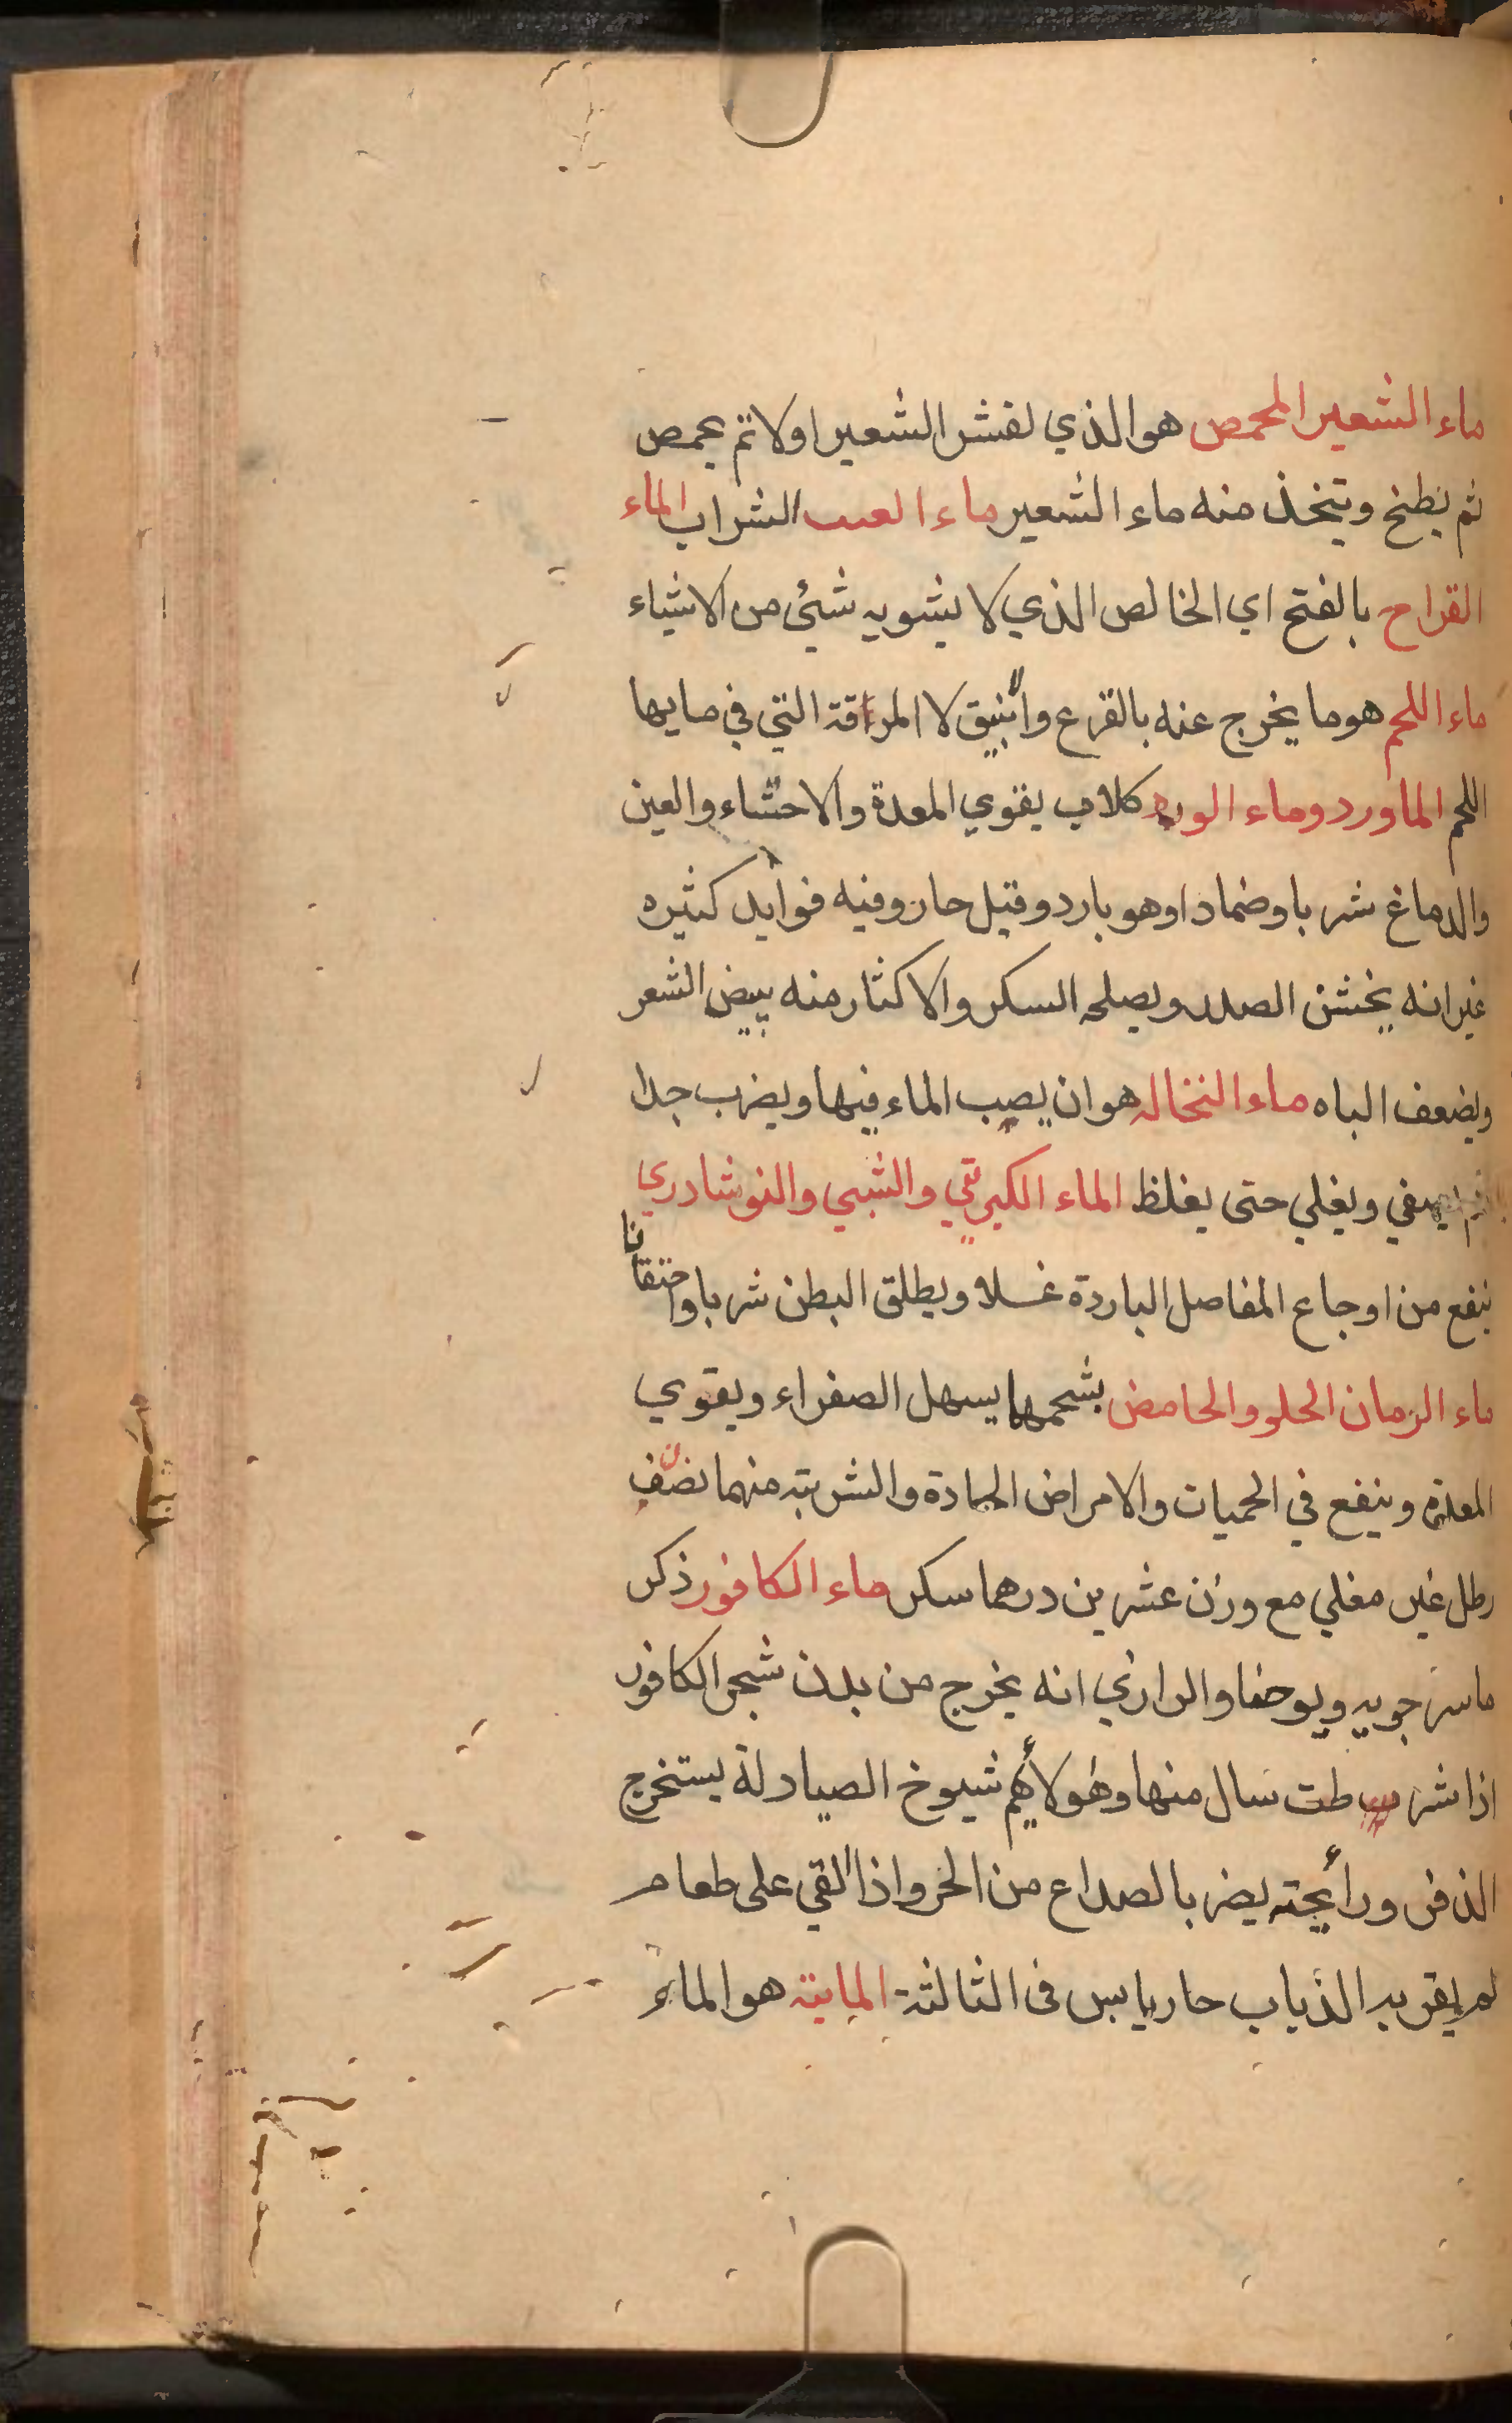 ماء الشعير المحمص هو الذي يقشر الشعير اولا ثم يحمص
ثم يطبخ ويتخذ منه ماء الشعير ماء العنب الشراب الماء
القراح بالفتح اي الخالص الذي لا يشوبه شئ من الاشياء
ماء اللحم هو ما يخرج عنه بالقرع وانبيق لا المراقة التي في مايها
اللحم الماورد وماء الورد كلاب يقوي المعدة والاحشاء والعين
والدماغ شربا وضمادا وهو بارد وقيل حار وفيه فوايد كثيره
غير انه يخشن الصدر ويصلحه السكر والاكثار منه يبيض الشعر
ويضعف الباه ماء النخاله هو ان يصب الماء فيها ويضرب جدا
ثم يصفي ويغلي حتى يغلظ الماء الكبرتي والشبي والنوشادري
ينفع من اوجاع المفاصل الباردة غسلا ويطلق البطن شربا واحتقانا
ماء الرمان الحلو والحامض بشحمها يسهل الصفراء ويقوي
المعدة وينفع في الحميات والامراض الحادة والشربة منهما نصف
رطل غير مغلي مع وزن عشرين درهما سكر ماء الكافور ذكر
ماسرجويه ويوحنا والرازي انه يخرج من بدن شجر الكافور
اذا شرطت سال منها وهولاء هم شيوخ الصيادلة يستخرج
الذفر ورائحته يضر بالصداع من الحر واذا القي على طعام
لم يقربه الذباب حار يابس فى الثالثة المايية هو الماء